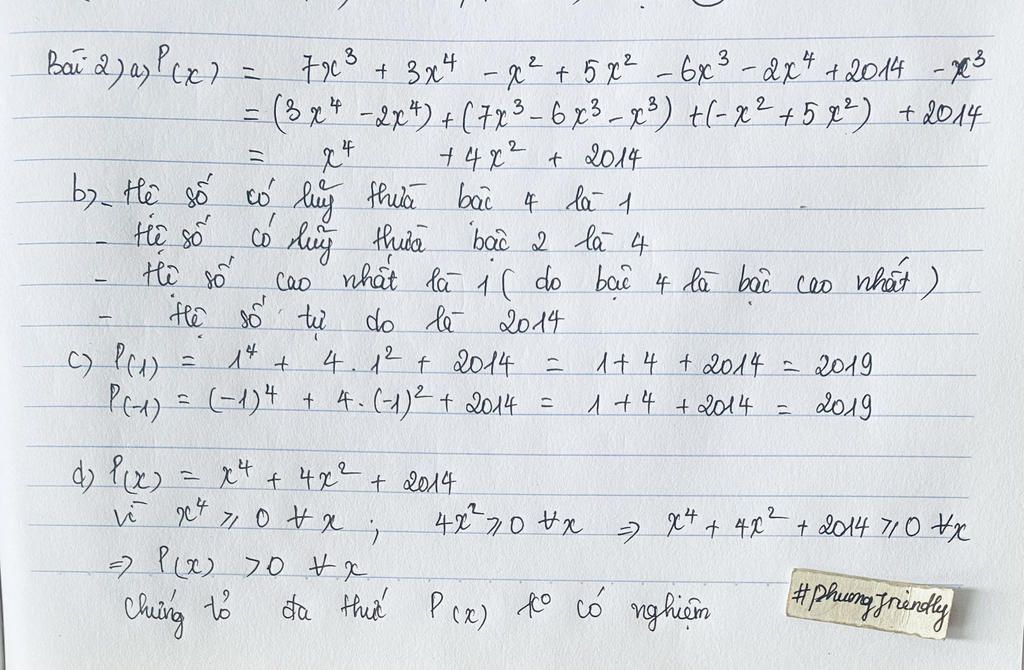 Bài 2) a, P(x) = 7x³ + 3x⁴ - x² + 5x² - 6x³ - 2x⁴ + 2014 - x³
= (3x⁴ - 2x⁴) + (7x³ - 6x³ - x³) + (-x² + 5x²) + 2014
= x⁴ + 4x² + 2014
b, - Hệ số có luỹ thừa bậc 4 là 1
- Hệ số có luỹ thừa bậc 2 là 4
- Hệ số cao nhất là 1 ( do bậc 4 là bậc cao nhất )
- Hệ số tự do là 2014
c) P(1) = 1⁴ + 4 . 1² + 2014 = 1 + 4 + 2014 = 2019
P(-1) = (-1)⁴ + 4 . (-1)² + 2014 = 1 + 4 + 2014 = 2019
d) P(x) = x⁴ + 4x² + 2014
Vì x⁴ ⩾ 0 ∀x ; 4x² ⩾ 0 ∀x ⇒ x⁴ + 4x² + 2014 ⩾ 0 ∀x
⇒ P(x) > 0 ∀x
Chứng tỏ đa thức P(x) k⁰ có nghiệm
#phuongfriendly